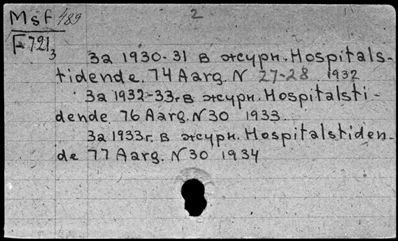 Msf/189 2
F-721₃
За 1930-31 в журн. Hospitals-
tidende. 74 Aarg. N 27-28 1932
За 1932-33г. в журн. Hospitalsti-
dende 76 Aarg. N 30 1933
За 1933г. в журн. Hospitalstiden-
de 77 Aarg. N 30 1934